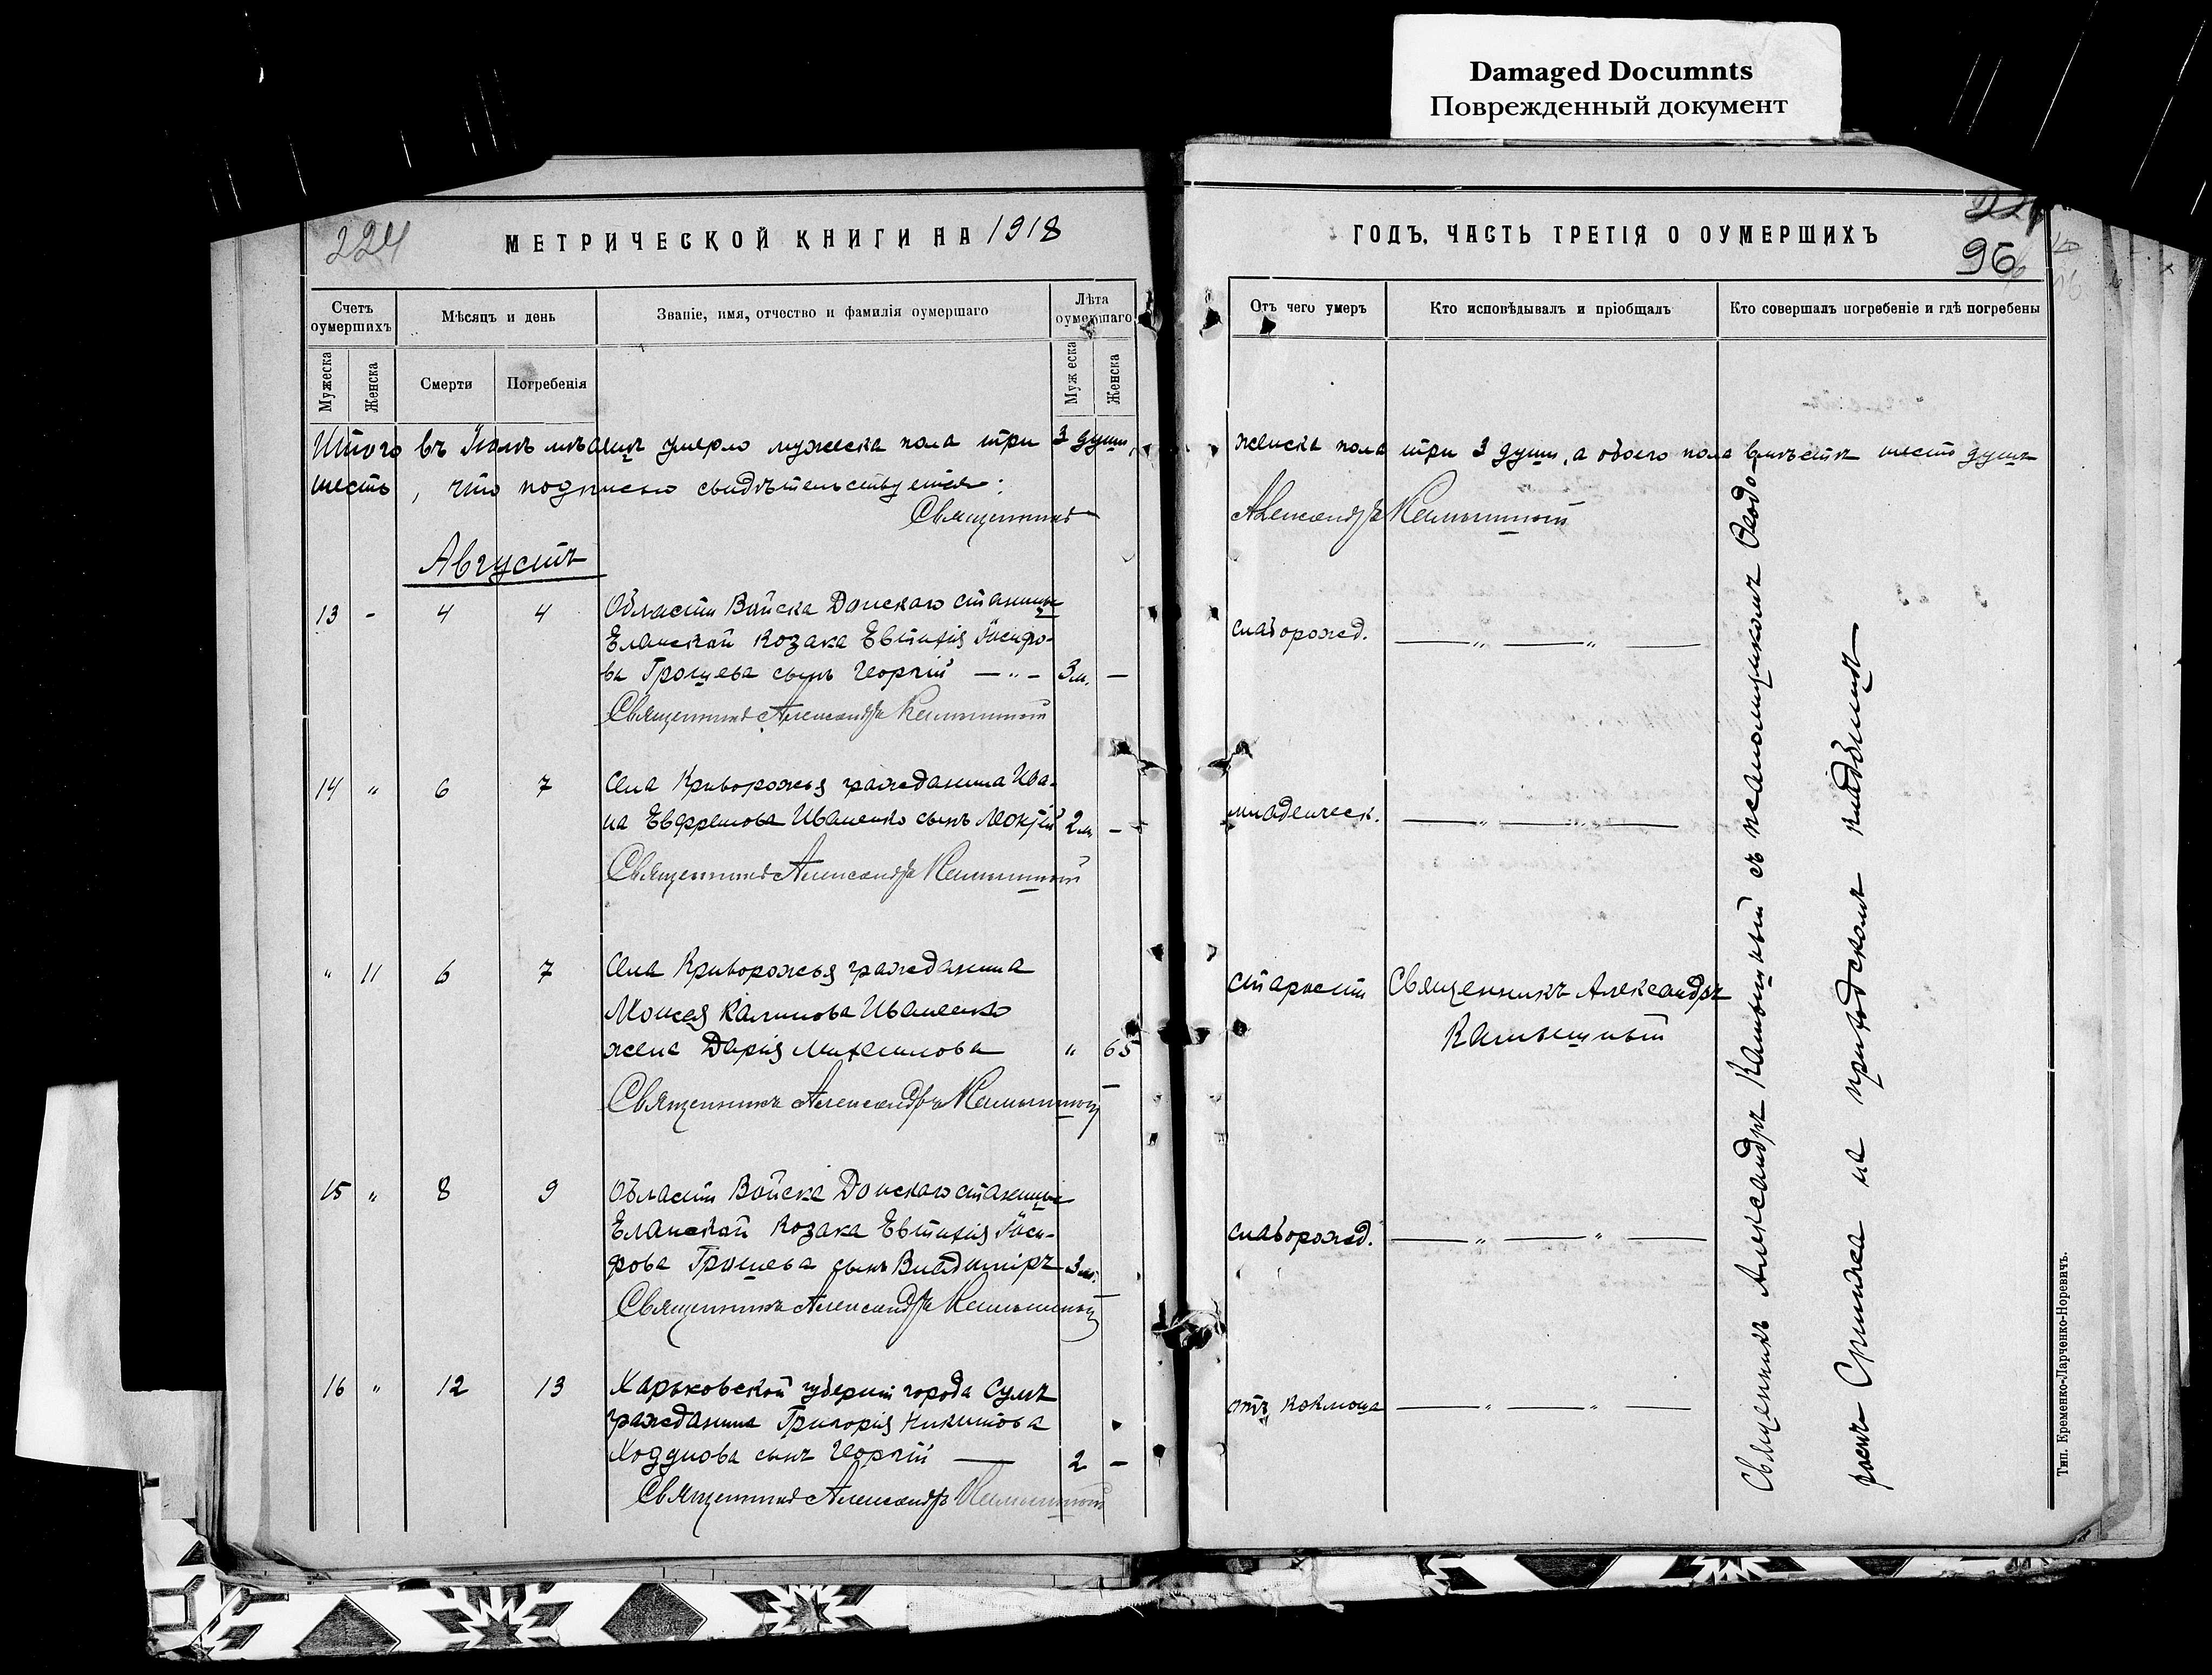 Damaged Documnts
Поврежденный документ
224
МЕТРИЧЕСКОЙ КНИГИ НА 1918
ГОДЪ, ЧАСТЬ ТРЕТІЯ О ОУМЕРШИХЪ
96
Счетъ оумершихъ
Мѣсяцъ и день
Званіе, имя, отчество и фамилія оумершаго
Лѣта оумершаго
Мужеска
Женска
Смерти
Погребенія
Мужеска
Женска
Отъ чего умеръ
Кто исповѣдывалъ и пріобщалъ
Кто совершалъ погребеніе и гдѣ погребены
Итого въ Іюлѣ мѣсяцѣ умерло мужеска пола три 3 души,
женска пола три 3 души, а обоего пола вмѣстѣ шесть душъ
шесть, что подписью свидѣтельствуется:
Священникъ
Александръ Камышный
Августъ
13 - 4 4 Области Войска Донского станицы
Еланской козака Евтихія Іосифо-
ва Грошева сынъ Георгій — „ – 3 м. —
слаборожд. — „ — „ —
Священникъ Александръ Камышный
14 „ 6 7 Села Криворожья гражданина Ива-
на Ефремова Иваненко сынъ 2 м —
младенческ. — „ — „ —
Священникъ Александръ Камышный
„ 11 6 7 Села Криворожья гражданина
Моисея Калинова Иваненко
жена Дарія Михаилова „ 65
старости Священникъ Александръ
Камышный
Священникъ Александръ Камышный
15 „ 8 9 Области Войска Донского станицы
Еланской козака Евтихія Іоси-
фова Грошева сынъ Владиміръ 3 м. —
слаборожд. — „ — „ —
Священникъ Александръ Камышный
16 „ 12 13 Харьковской губерніи города Сумъ
гражданина Григорія Никитова
Ходунова сынъ Георгій — 2 —
отъ коклюша — „ — „ —
Священникъ Александръ Камышный
Священникъ Александръ Камышный съ псаломщикомъ Ѳеодо-
ромъ на приходскомъ кладбищѣ
Тип. Еременко-Ларченко-Норевичъ.